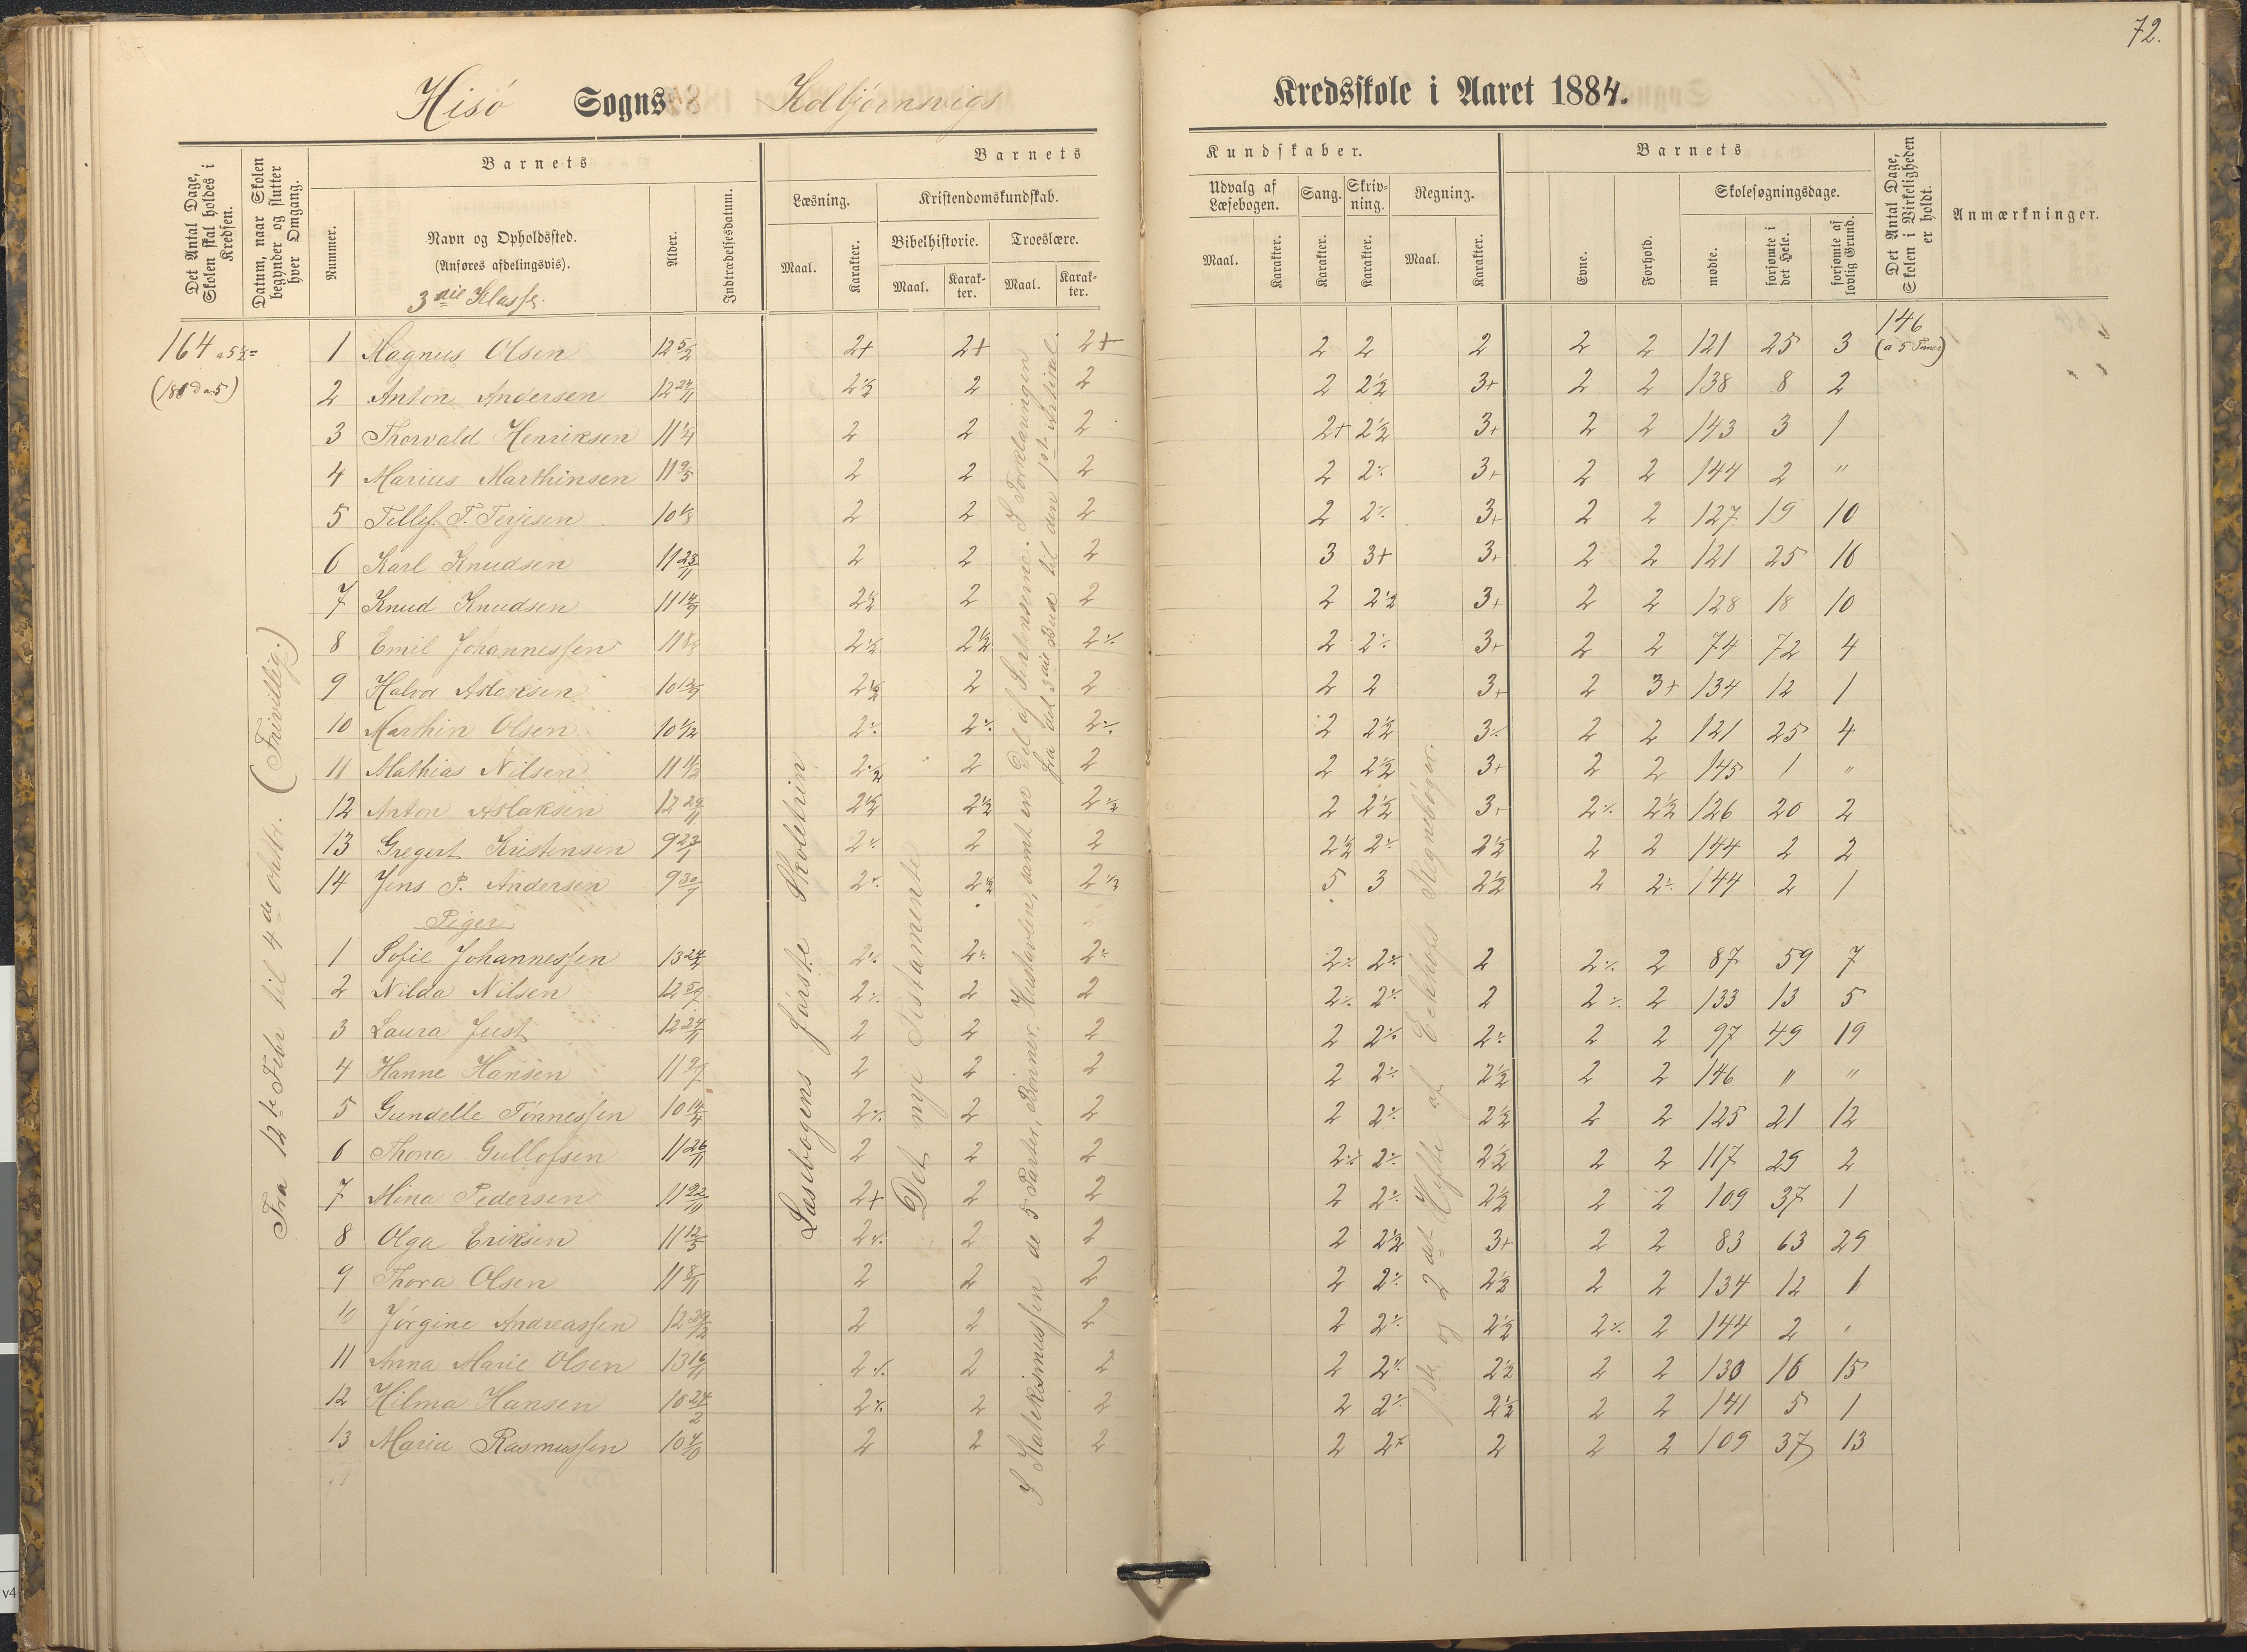 72.
Hisø Sogns Kolbjørnsvigs Kredsskole i Aaret 1884.
Det Antal Dage, Skolen skal holdes i Kredsen.
Datum, naar Skolen begynder og slutter hver Omgang.
Barnets
Nummer.
Navn og Opholdssted.
(Anføres afdelingsvis).
3die Klasse.
Alder.
Indtrædelsesdatum.
Barnets Kundskaber.
Læsning.
Maal. Karakter.
Kristendomskundskab.
Bibelhistorie. Troeslære.
Maal. Karakter. Maal. Karakter.
Udvalg af Læsebogen.
Maal. Karakter.
Sang. Karakter.
Skrivning. Karakter.
Regning.
Maal. Karakter.
Barnets
Evne. Forhold.
Skolesøgningsdage.
mødte. forsømte i det Hele. forsømte af lovlig Grund.
Det Antal Dage, Skolen i Virkeligheden er holdt.
Anmærkninger.
164 a 5½ =
(180 D a 5)
146
(a 5 Timer)
Fra 12te Febr til 4de Oktbr. (Frivillig.)
Læsebogens første Skoletrin
Det nye Testamente
I Katekismussen de 5 Parter, Bønner, Hustavlen, samt en Del af Sentenserne. I Forklaringen
fra Guds 3die Bud til den 1ste Artikel.
1ste og 2det Hefte af Eckhofs Regnebøger.
1 Magnus Olsen 12 5/2 2+ 2+ 2+ 2 2 2 2 2 121 25 3
2 Anton Andersen 12 24/11 2½ 2 2 2 2½ 3+ 2 2 138 8 2
3 Thorvald Henriksen 11 1/4 2 2 2 2+ 2½ 3+ 2 2 143 3 1
4 Marius Marthinsen 11 9/5 2 2 2 2 2÷ 3+ 2 2 144 2 "
5 Tellef T. Terjesen 10 1/8 2 2 2 2 2÷ 3+ 2 2 127 19 10
6 Karl Knudsen 11 23/11 2 2 2 3 3+ 3+ 2 2 121 25 16
7 Knud Knudsen 11 14/9 2½ 2 2 2 2½ 3+ 2 2 128 18 10
8 Emil Johannessen 11 8/8 2½ 2½ 2÷ 2 2÷ 3+ 2 2 74 72 4
9 Halvor Aslaksen 10 12/9 2½ 2 2 2 2 3+ 2 3+ 134 12 1
10 Marthin Olsen 10 1/12 2÷ 2÷ 2÷ 2 2½ 3÷ 2 2 121 25 4
11 Mathias Nilsen 11 11/2 2½ 2 2 2 2½ 3+ 2 2 145 1 "
12 Anton Aslaksen 12 29/11 2½ 2½ 2½ 2 2½ 3+ 2÷ 2½ 126 20 2
13 Gregert Kristensen 9 23/1 2÷ 2 2 2½ 2÷ 2½ 2 2 144 2 2
14 Jens P. Andersen 9 30/7 2÷ 2½ 2½ 5 3 2½ 2 2÷ 144 2 1
Piger
1 Sofie Johannessen 13 24/2 2÷ 2÷ 2÷ 2÷ 2÷ 2 2÷ 2 87 59 7
2 Nilda Nilsen 12 5/9 2÷ 2 2 2÷ 2÷ 2 2÷ 2 133 13 5
3 Laura Just 12 24/11 2 2 2 2 2÷ 2÷ 2 2 97 49 19
4 Hanne Hansen 11 9/7 2 2 2 2 2÷ 2½ 2 2 146 " "
5 Gundelle Tønnessen 10 14/4 2÷ 2 2 2 2÷ 2½ 2 2 125 21 12
6 Thona Gullofsen 11 26/11 2 2 2 2÷ 2÷ 2½ 2 2 117 29 2
7 Mina Pedersen 11 22/10 2+ 2 2 2 2÷ 2½ 2 2 109 37 1
8 Olga Eriksen 11 12/3 2÷ 2 2 2 2½ 3+ 2 2 83 63 29
9 Thora Olsen 11 8/11 2 2 2 2 2÷ 2½ 2 2 134 12 1
10 Jørgine Andreassen 12 29/12 2 2 2 2 2÷ 2½ 2÷ 2 144 2 "
11 Anna Marie Olsen 13 16/11 2÷ 2 2 2 2÷ 2½ 2 2 130 16 15
12 Hilma Hansen 10 24/2 2÷ 2 2 2 2÷ 2½ 2 2 141 5 1
13 Maria Rasmussen 10 4/10 2 2 2 2 2÷ 2 2 2 109 37 13
v4